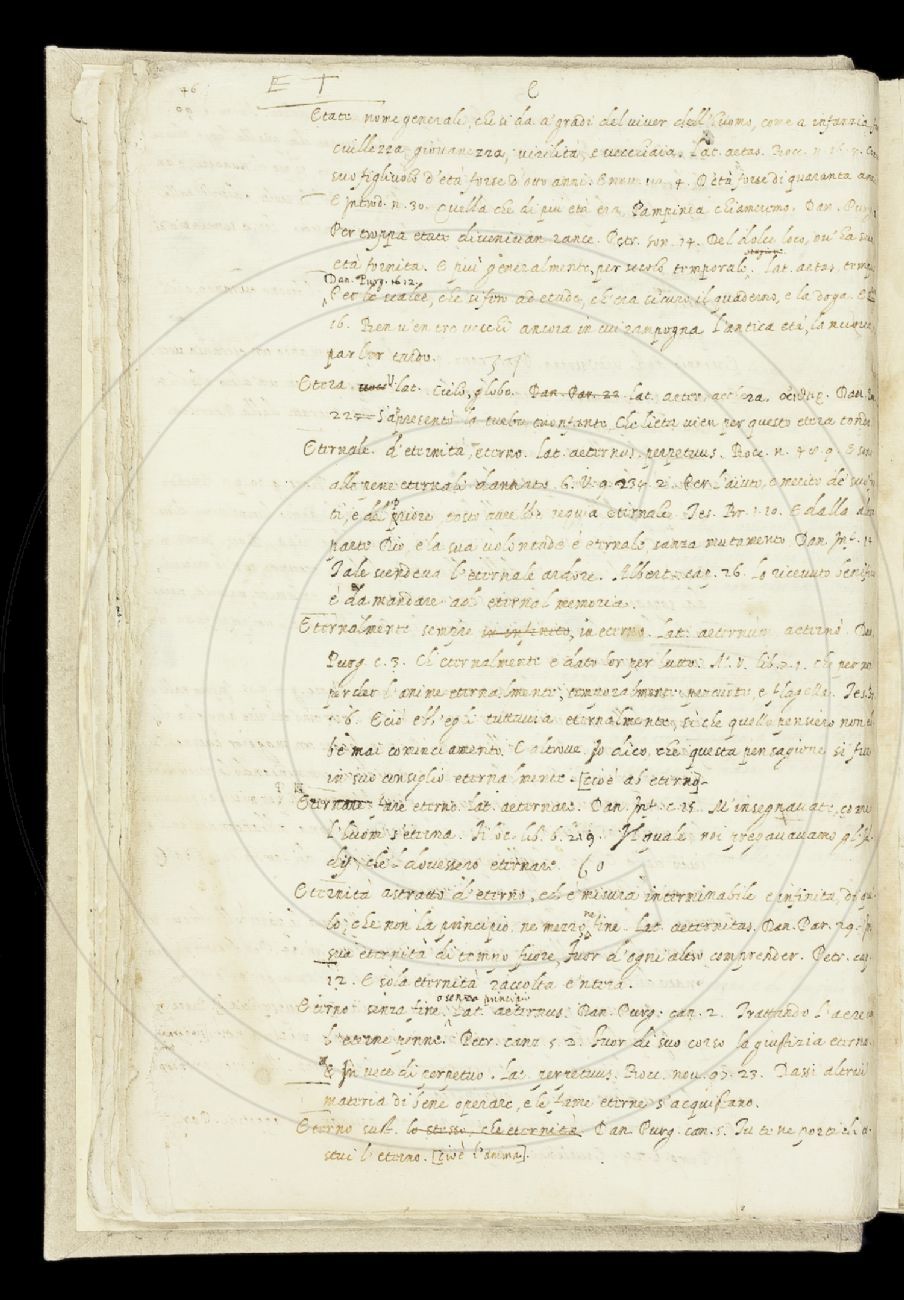 46
E T
C
Etate nome generale, che si da a' gradi del viver dell'huomo, come a infanzia, fa
ciullezza, giovanezza, virilità, e vecchiaia. Lat. aetas. Bocc. n. 16.
suo figlivolo d'età forse d'otto anni. E nov. 4. D'età forse di quaranta an
E Introd. n. 30. Quella che di più età era, Pampinea chiameremo. Dan. Pur
Per troppa etate divenivan rance. Petr. son. 14. Del dolce loco, ov' ha sua
età fornita. E più generalmente, per secolo temporale. Lat. aetas. tempus
Dan. Purg. 16 12.
Per le scalee, che si fero ad etade, ch'era sicuro il quaderno, e la doga. E
16. Ben v'en tre vecchi ancora in cui rampogna l'antica età, la nuova,
par lor tardo.
Etera lat. Cielo, globo. Dan. Par. 22 lat. aeter, aethera. Dan.
22 s'apresentò la turba trionfante, Che lieta vien per questo etera tondo
Eternale. d'eternità, eterno. lat. aeternus. perpetuus. Bocc. n. E sono
alle pene eternali dannato. G. V. 9. 2. Per l'aiuto, e merito de' suoi
ti, e del priore, tosto avrebbe requia eternale. Tes. Br. 1. 10. E dalla alta
parte Dio, e la sua volontade è eternale, sanza mutamento Dan. Inf. 14
Tale scendeva l'eternale ardore. Albert. cap. 26. Lo ricevuto benificio
è da mandare ad eternal memoria.
Eternalmente sempre in infinito, in eterno. Lat. aeternùm aeternò. Dan.
Purg. c. 3. Ch'eternalmente è dato lor per lutto. M. V. lib. 2. 1. che per non
perder l'anime eternalmente, temporalmente percuote, e flagella. Tes. Br.
6. E ciò ebb'egli tuttavia eternalmente, sì che quello pensiero non eb
be mai cominciamento. E altrove. Io dico, che questa pensagione si fue
in suo consiglio eternalmente [cioè ab eterno].
Eternare fare eterno. Lat. aeternare. Dan. Inf. c. 15. M'insegnavate, come
l'huom s'eterna. Filoc. lib. 6. 219. Il quale noi pregavavamo gl'Id
dij, che 'l dovessero eternare. 60
Eternità astratto d'eterno, ch'è misura interminabile e infinita, di que
lo, che non ha principio, ne mezzo, ne fine. Lat. aeternitas. Dan. Par. 29. In
sua eternità di tempo fuore, Fuor d'ogni altro comprender. Petr. cap
12. E sola eternità raccolta e'ntera.
Eterno senza fine, o senza principio. Lat. aeternus. Dan. Purg. can. 2. Trattando l'aere con
l'eterne penne. Petr. canz 5. 2. Fuor di suo corso la giustizia eterna
& In vece di perpetuo. Lat. perpetuus. Bocc. nov. 97. 23. Dassi altrui
materia di bene operare, e le fame eterne s'acquistano.
Eterno sust. lo stesso, che eternità. Dan. Purg. can. 5. Tu te ne porti di co
stui l'eterno. [cioè l'anima].